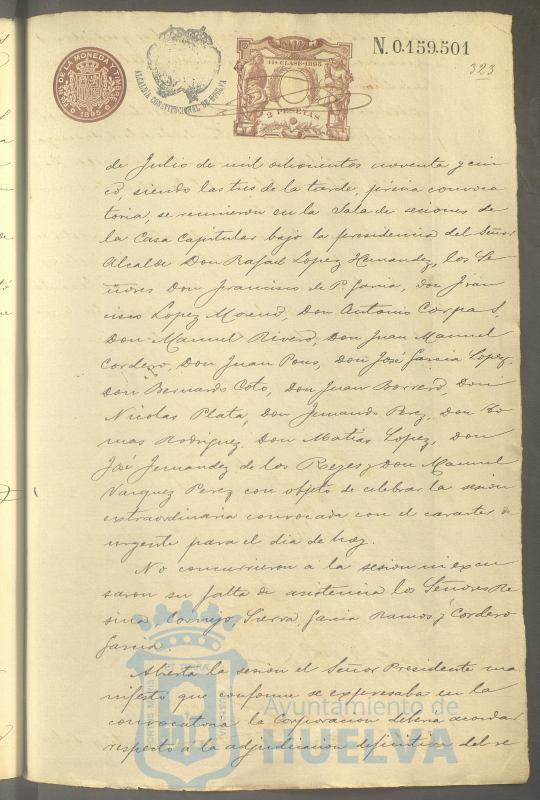 N. 0.159.501
323
11ª CLASE-1895
2 PESETAS
1895
ALCALDIA CONSTITUCIONAL DE HUELVA
de Julio de mil ochocientos noventa y cin
co, siendo las tres de la tarde, previa convoca
toria, se reunieron en la Sala de sesiones de
la Casa Capitular bajo la presidencia del Señor
Alcalde Don Rafael Lopez Hernandez, los Se
ñores Don Francisco de P. Garcia, Don Fran
cisco Lopez Moreno, Don Antonio Corpas,
Don Manuel Rivero, Don Juan Manuel
Cordero, Don Juan Pons, Don José Garcia Lopez,
Don Bernardo Coto, Don Juan Borrero, Don
Nicolas Plata, Don Fernando Perez, Don To
mas Rodriguez, Don Matias Lopez, Don
José Fernandez de los Reyes y Don Manuel
Vazquez Perez con objeto de celebrar la sesion
extraordinaria convocada con el caracter de
urgente para el dia de hoy.
No concurrieron a la sesion ni excu
saron su falta de asistencia los Señores Re
sina, Cornejo, Sierra, Garcia Ramos y Cordero
Garcia.
Abierta la sesion el Señor Presidente ma
nifestó que conforme se expresaba en la
convocatoria la Corporacion deberia acordar
respecto a la adjudicacion definitiva del se
Ayuntamiento de
HUELVA